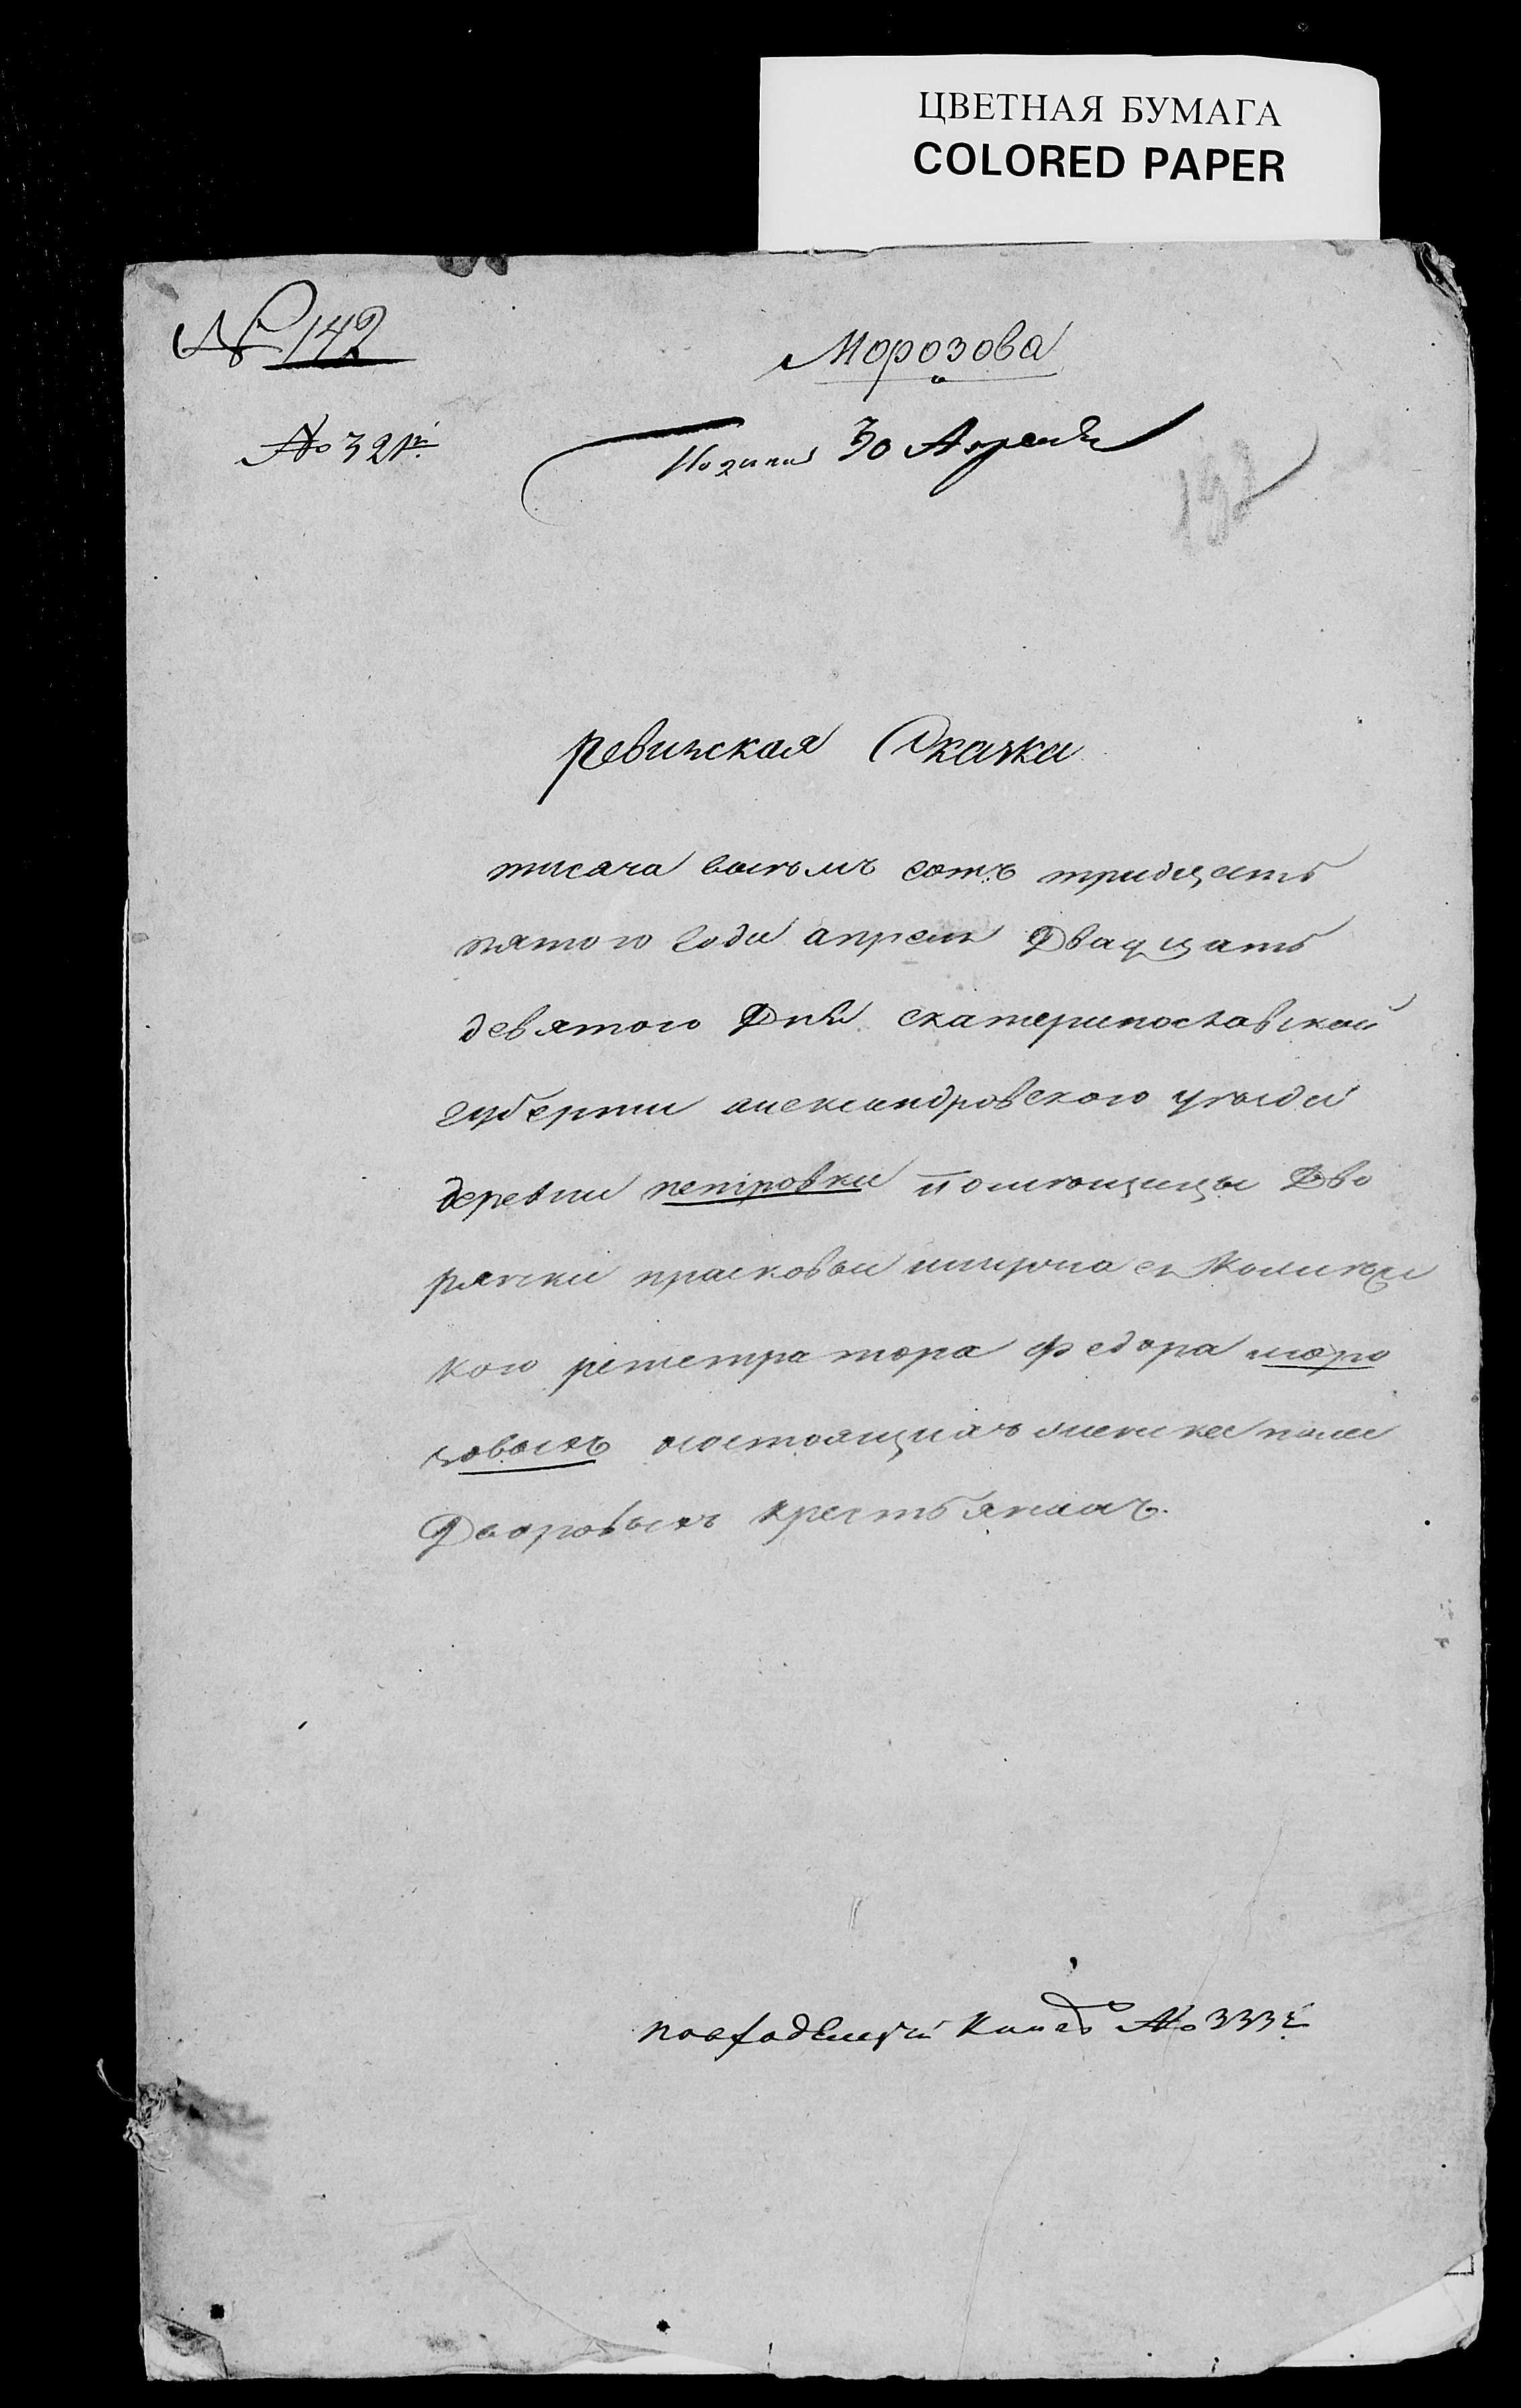 ЦВЕТНАЯ БУМАГА
COLORED PAPER
№ 142
Морозова
№ 321й
30 Апреля
132
Ревизская Скаска
тисача восъмъ сотъ тридцать
пятого года апреля Двадцать
девятого Дня екатеринославской
губернии александровского уѣзда
деревни петровки помѣщицы Дво
рянки прасковьи
кого регистратора федора моро
зовыхъ состоящихъ
Дворовыхъ крестьянахъ.
№ 333